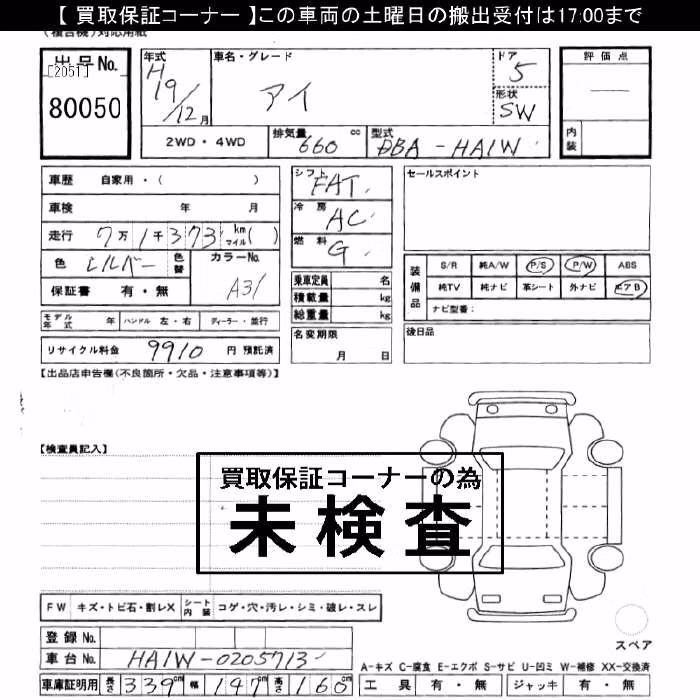 【 買取保証コーナー 】この車両の土曜日の搬出受付は17:00まで
出品No.
[2051]
80050
年式
H 19/12月
車名・グレード
アイ
ドア
5
形状
SW
評価点
内装
2WD・4WD
排気量 660 cc
型式 DBA-HA1W
車歴 自家用・( )
車検 年 月
走行 7万 1千 373 km マイル( )
色 シルバー 色替
カラーNo. A31
保証書 有・無
シフト FAT
冷房 AC
燃料 G
乗車定員 名
積載量 kg
総重量 kg
セールスポイント
装備品
S/R 純A/W P/S P/W ABS
純TV 純ナビ 革シート 外ナビ エアB
ナビ型番:
モデル年式 年 ハンドル 左・右 ディーラー・並行
リサイクル料金 9910 円 預託済
名変期限 月 日
後日品
【出品店申告欄(不良箇所・欠品・注意事項等)】
【検査員記入】
買取保証コーナーの為
未検査
FW キズ・トビ石・割レX シート内装 コゲ・穴・汚レ・シミ・破レ・スレ
登録No.
車台No. HA1W-0205713
車庫証明用 長さ 339cm 幅 147cm 高さ 160cm
スペア
A-キズ C-腐食 E-エクボ S-サビ U-凹ミ W-補修 XX-交換済
工具 有・無 ジャッキ 有・無